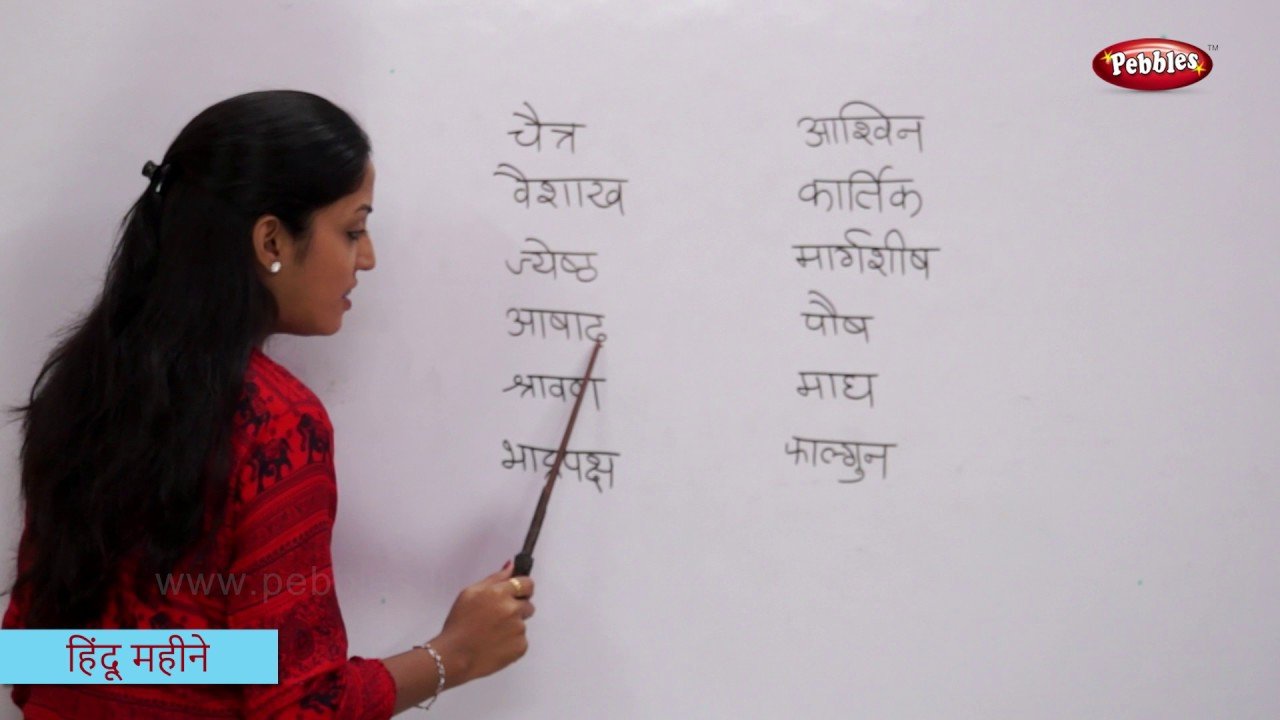 Pebbles™
चैत्र
वैशाख
ज्येष्ठ
आषाढ
श्रावण
भाद्रपक्ष
आश्विन
कार्तिक
मार्गशीष
पौष
माघ
फाल्गुन
हिंदू महीने